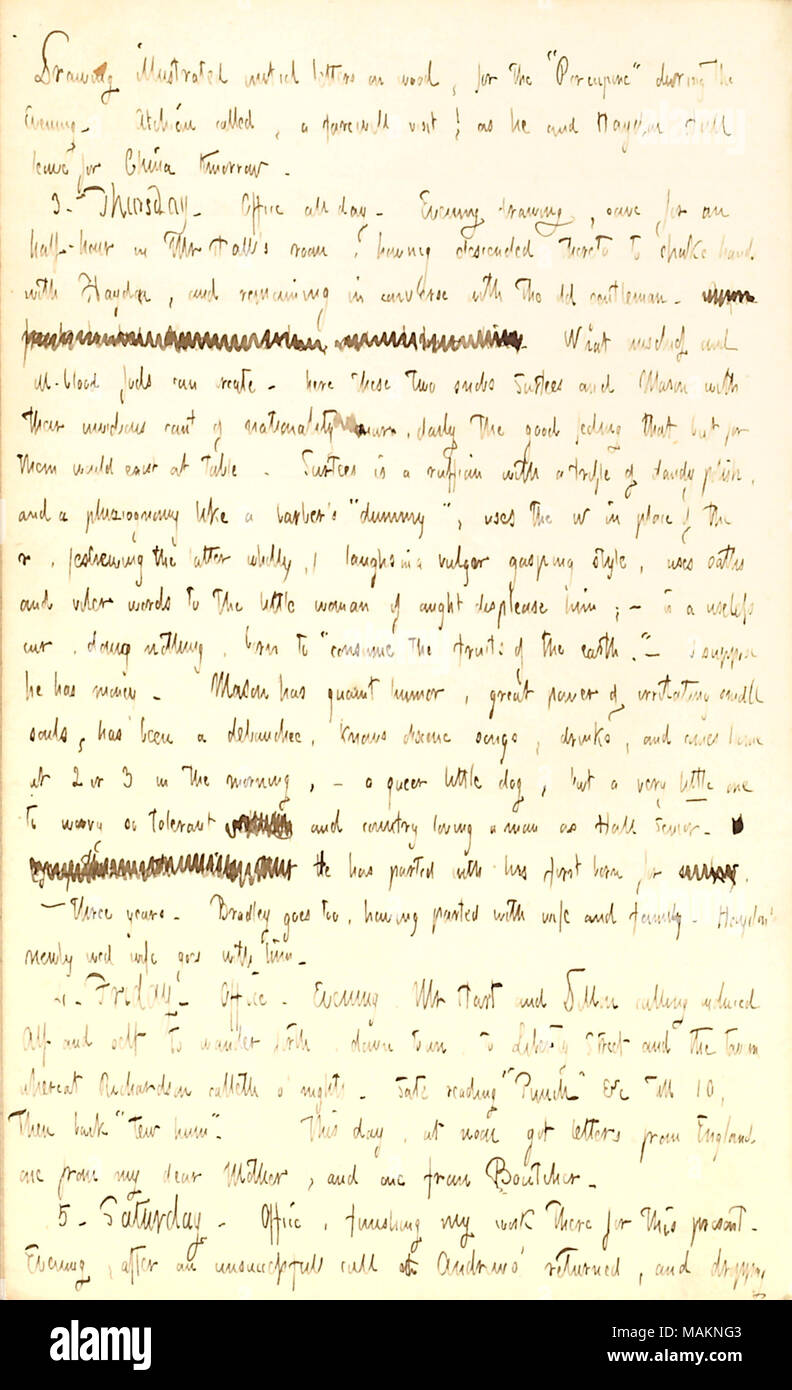 Drawing illustrated initial letters on wood, for the "Porcupine" during the
Evening. Atchison called, a farewell visit! as he and Haydn Hall
leave for China tomorrow.
3. Thursday. Office all day. Evening drawing, save for an
half-hour in Mr Hall's room, having descended thereto to shake hand
with Haydn, and remaining in converse with the old gentleman.
What mischief and
ill-blood fools can create. here these two snobs Surtees and Mason with
their insidious cant of nationality mar, daily the good feeling that, but for
them would exist at table. Surtees is a ruffian with a trifle of dandy polish,
and a phiziognomy like a barber's "dummy", uses the w in place of the
r, (eschewing the latter wholly,) laughs in a vulgar gasping style, uses oaths
and viler words to the little woman if aught displease him; – is a useless
cur, doing nothing, born to "consume the fruits of the earth." – I suppose
he has money. Mason has quaint humor, great power of irritating small
souls, has been a debauchee, knows obscene songs, drinks, and comes home
at 2 or 3 in the morning, – a queer little dog, but a very little one
to worry so tolerant and country loving a man as Hall Senior.
He has parted with his first born for
– three years. Bradley goes too, having parted with wife and family. Haydn's
newly wed wife goes with him.
4. Friday. Office. Evening Mr Hart and Dillon calling induced
Alf and self to wander forth, down town, to Liberty Street and the tavern
whereat Richardson calleth o'nights. Sate reading "Punch" &c till 10,
then back "tew hum". This day, at noon got letters from England
one from my dear Mother, and one from Boutcher.
5. Saturday. Office, finishing my work there for this present.
Evening, after an unsuccessfull call at Andrews' returned, and
alamy
Image ID: MAKNG3
www.alamy.com